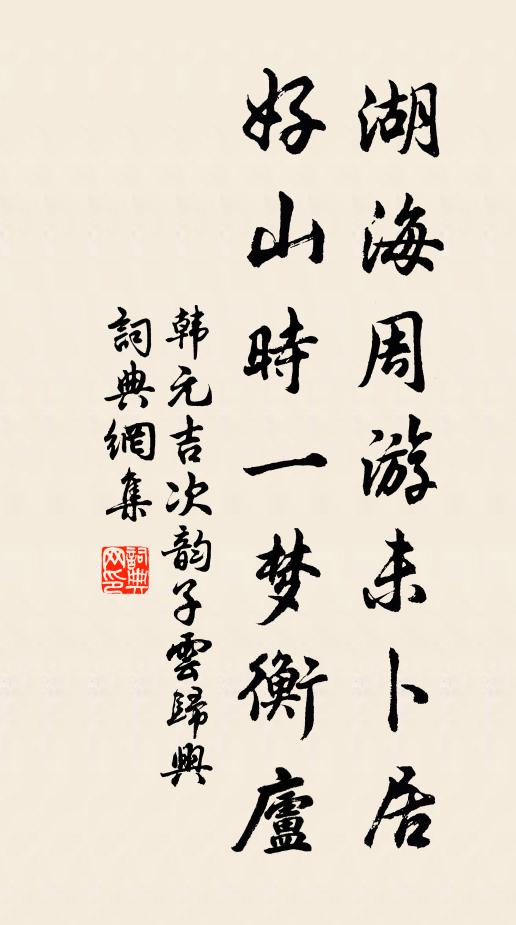 湖海周游未卜居
好山時一梦衡廬
韩元吉次韵子雲歸興
詞典網集
詞典网印